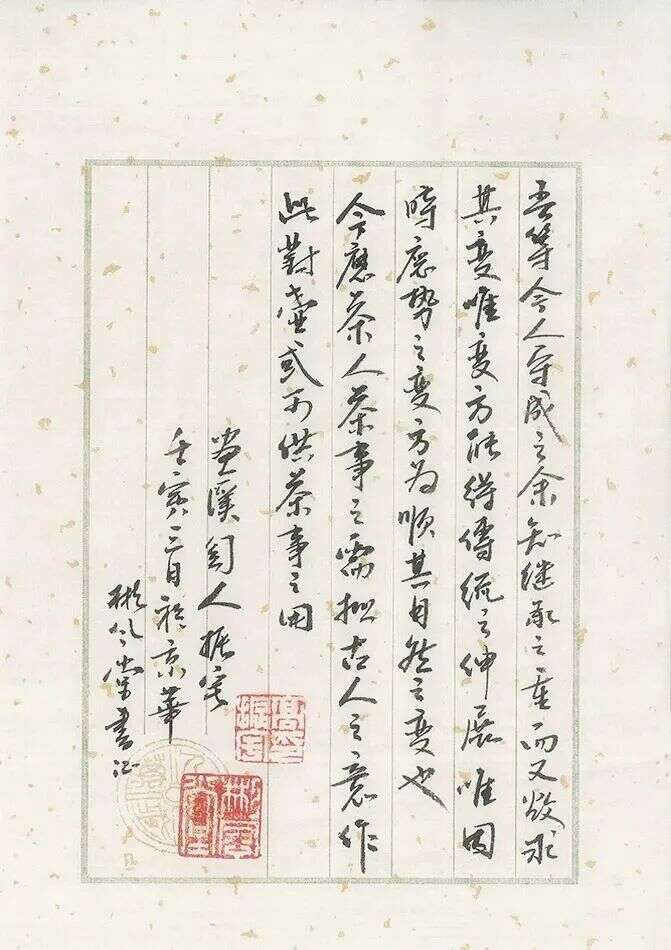 吾等今人守成之余知继承之重而又啟示
其变唯变方能得傳統之伸展唯因
時應势之变方为順其自然之变也
今應茶人茶事之需拟古人之意作
此對壺或可供茶事之用
壺溪匋人振宇
壬寅三月於京華
書記